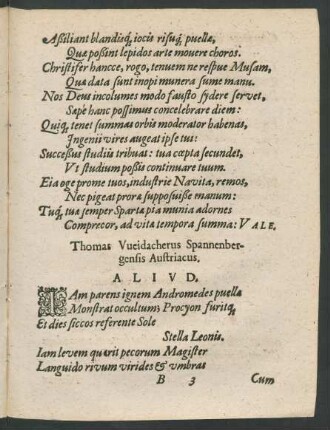 Aßiliant blandisq́; iocis risuq́; puellæ,
Quæ poßint lepidos arte movere choros.
Christifer hancce, rogo, tenuem ne respue Musam,
Quæ data sunt inopi munera sume manu.
Nos Deus incolumes modo fausto sydere servet,
Sæpè hanc poßimus concelebrare diem:
Quiq́; tenet summas orbis moderator habenas,
Ingenii vires augeat ipse tui:
Succeßus studiis tribuat: tua cœpta secundet,
Vt studium poßis continuare tuum.
Eia age prome tuos, industrie Navita, remos,
Nec pigeat proræ supposuiße manum:
Tuq́; tua semper Sparta pia munia adornes
Comprecor, ad vitæ tempora summa: VALE.
Thomas Vueidacherus Spannenber-
gensis Austriacus.
ALIVD.
IAm parens ignem Andromedes puellæ
Monstrat occultum; Procyon furitq́;
Et dies siccos referente Sole
Stella Leonis.
Iam levem quærit pecorum Magister
Languido rivum virides & vmbras
B 3 Cum